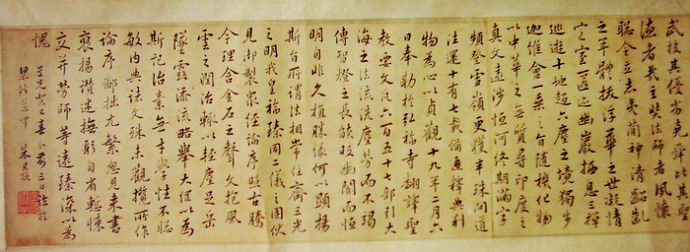 武校其優劣堯舜比其聖
德者哉玄奘法師者夙懷
聰令立志夷簡神清齠齔
之年體拔浮華之世凝情
定室匿迹幽巖栖息三禪
巡遊十地超六塵之境獨步
迦維會一乘之旨隨機化物
以中華之無質尋印度之
真文遠涉恒河終期滿字
頻登雪嶺更獲半珠問道
法還十有七載備通釋典利
物為心以貞觀十九年二月六
日奉勅於弘福寺翻譯聖
教要文凡六百五十七部引大
海之法流洗塵勞而不竭
傳智燈之長焰皎幽闇而恒
明自非久植勝緣何以顯揚
斯旨所謂法相常住齊三光
之明我皇福臻同二儀之固伏
見御製眾經論序照古騰
今理含金石之聲文抱風
雲之潤治輒以輕塵足岳
墜露添流略舉大綱以為
斯記治素無才學性不聰
敏內典諸文殊未觀攬所作
論序鄙拙尤繁忽見來書
褒揚讚述撫躬自省慙悚
交并勞師等遠臻深以為
愧